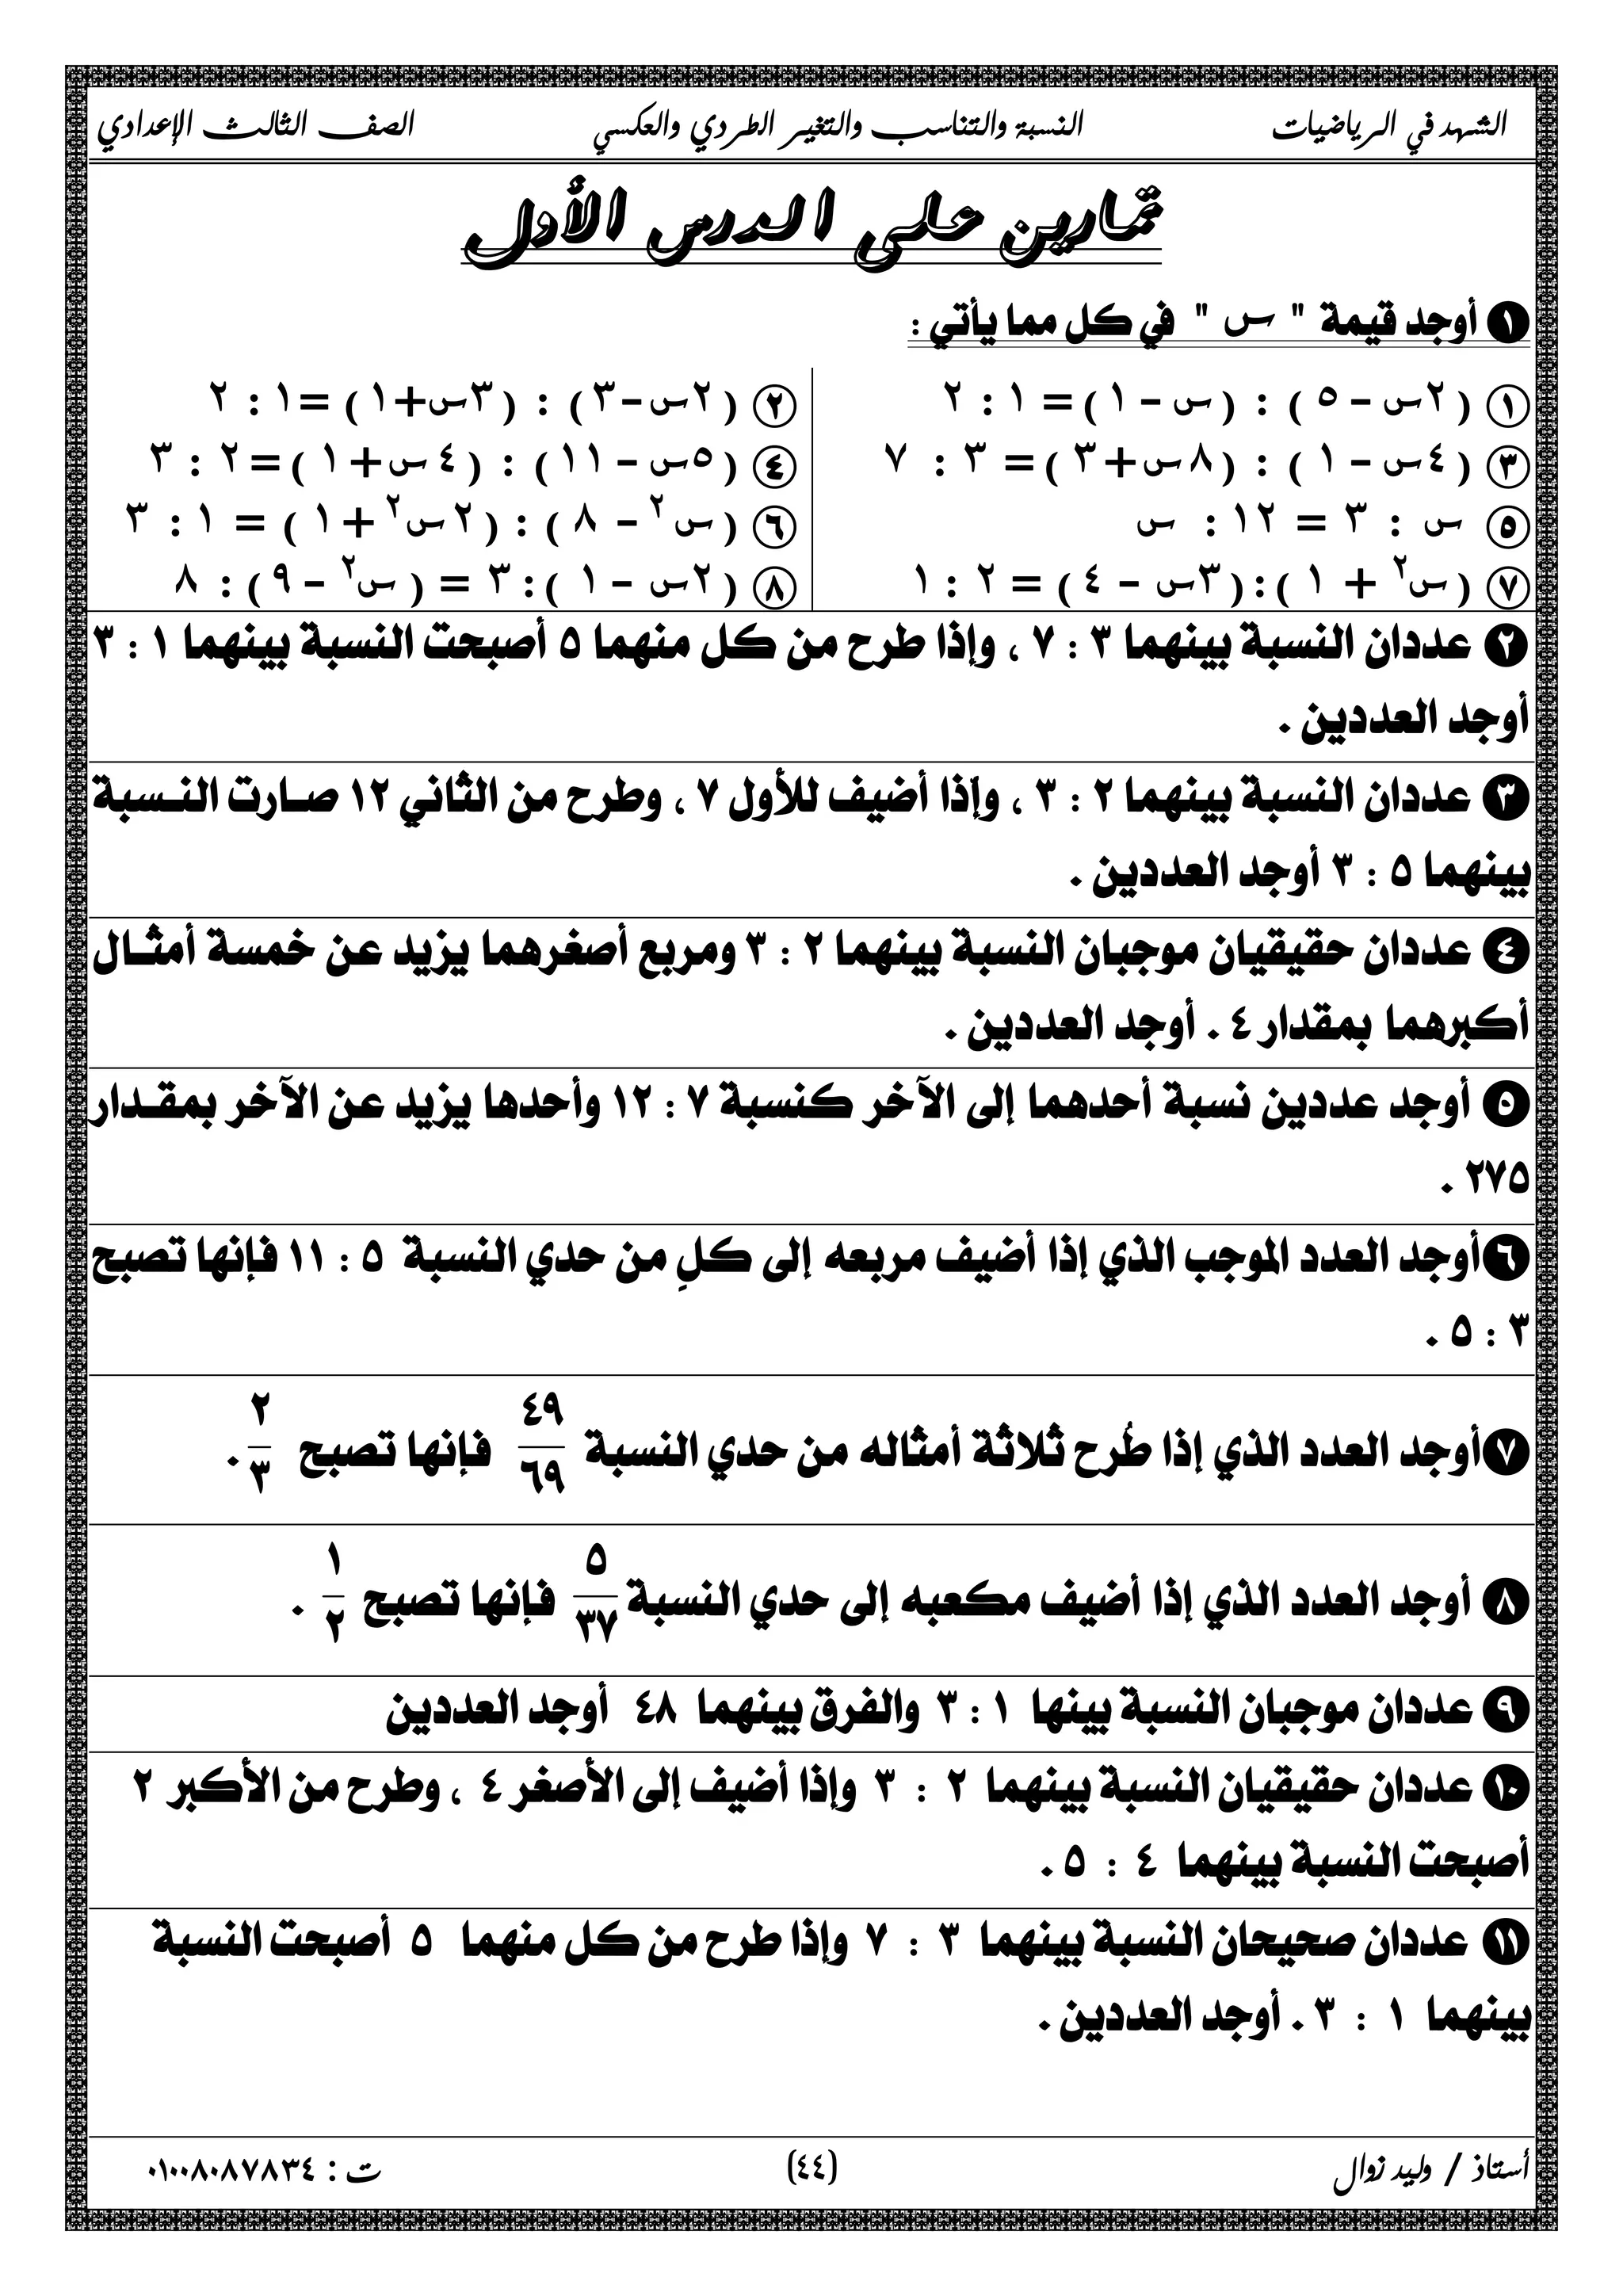 الشهد في الرياضيات النسبة والتناسب والتغير الطردي والعكسي الصف الثالث الإعدادي
تمارين على الدرس الأول
١ أوجد قيمة " س " في كل مما يأتي :
١ ( ٢س – ٥ ) : ( س – ١ ) = ١ : ٢
٢ ( ٢س – ٣ ) : ( ٣س + ١ ) = ١ : ٢
٣ ( ٤س – ١ ) : ( ٨س + ٣ ) = ٣ : ٧
٤ ( ٥س – ١١ ) : ( ٤س + ١ ) = ٢ : ٣
٥ س : ٣ = ١٢ : س
٦ ( س٢ – ٨ ) : ( ٢س٢ + ١ ) = ١ : ٣
٧ ( س٢ + ١ ) : ( ٣س – ٤ ) = ٢ : ١
٨ ( ٢س – ١ ) : ٣ = ( س٢ – ٩ ) : ٨
٢ عددان النسبة بينهما ٣ : ٧ ، وإذا طرح من كل منهما ٥ أصبحت النسبة بينهما ١ : ٣
أوجد العددين .
٣ عددان النسبة بينهما ٢ : ٣ ، وإذا أضيف للأول ٧ ، وطرح من الثاني ١٢ صارت النسبة
بينهما ٥ : ٣ أوجد العددين .
٤ عددان حقيقيان موجبان النسبة بينهما ٢ : ٣ ومربع أصغرهما يزيد عن خمسة أمثال
أكبرهما بمقدار ٤ . أوجد العددين .
٥ أوجد عددين نسبة أحدهما إلى الآخر كنسبة ٧ : ١٢ وأحدها يزيد عن الآخر بمقدار
٢٧٥ .
٦ أوجد العدد الموجب الذي إذا أضيف مربعه إلى كلٍ من حدي النسبة ٥ : ١١ فإنها تصبح
٣ : ٥ .
٧ أوجد العدد الذي إذا طُرح ثلاثة أمثاله من حدي النسبة ٤٩/٦٩ فإنها تصبح ٢/٣ .
٨ أوجد العدد الذي إذا أضيف مكعبه إلى حدي النسبة ٥/٣٧ فإنها تصبح ١/٢ .
٩ عددان موجبان النسبة بينها ١ : ٣ والفرق بينهما ٤٨ أوجد العددين
١٠ عددان حقيقيان النسبة بينهما ٢ : ٣ وإذا أضيف إلى الأصغر ٤ ، وطرح من الأكبر ٢
أصبحت النسبة بينهما ٤ : ٥ .
١١ عددان صحيحان النسبة بينهما ٣ : ٧ وإذا طرح من كل منهما ٥ أصبحت النسبة
بينهما ١ : ٣ . أوجد العددين .
أستاذ / وليد زوال (٤٤) ت : ٠١٠٠٨٠٨٧٨٣٤